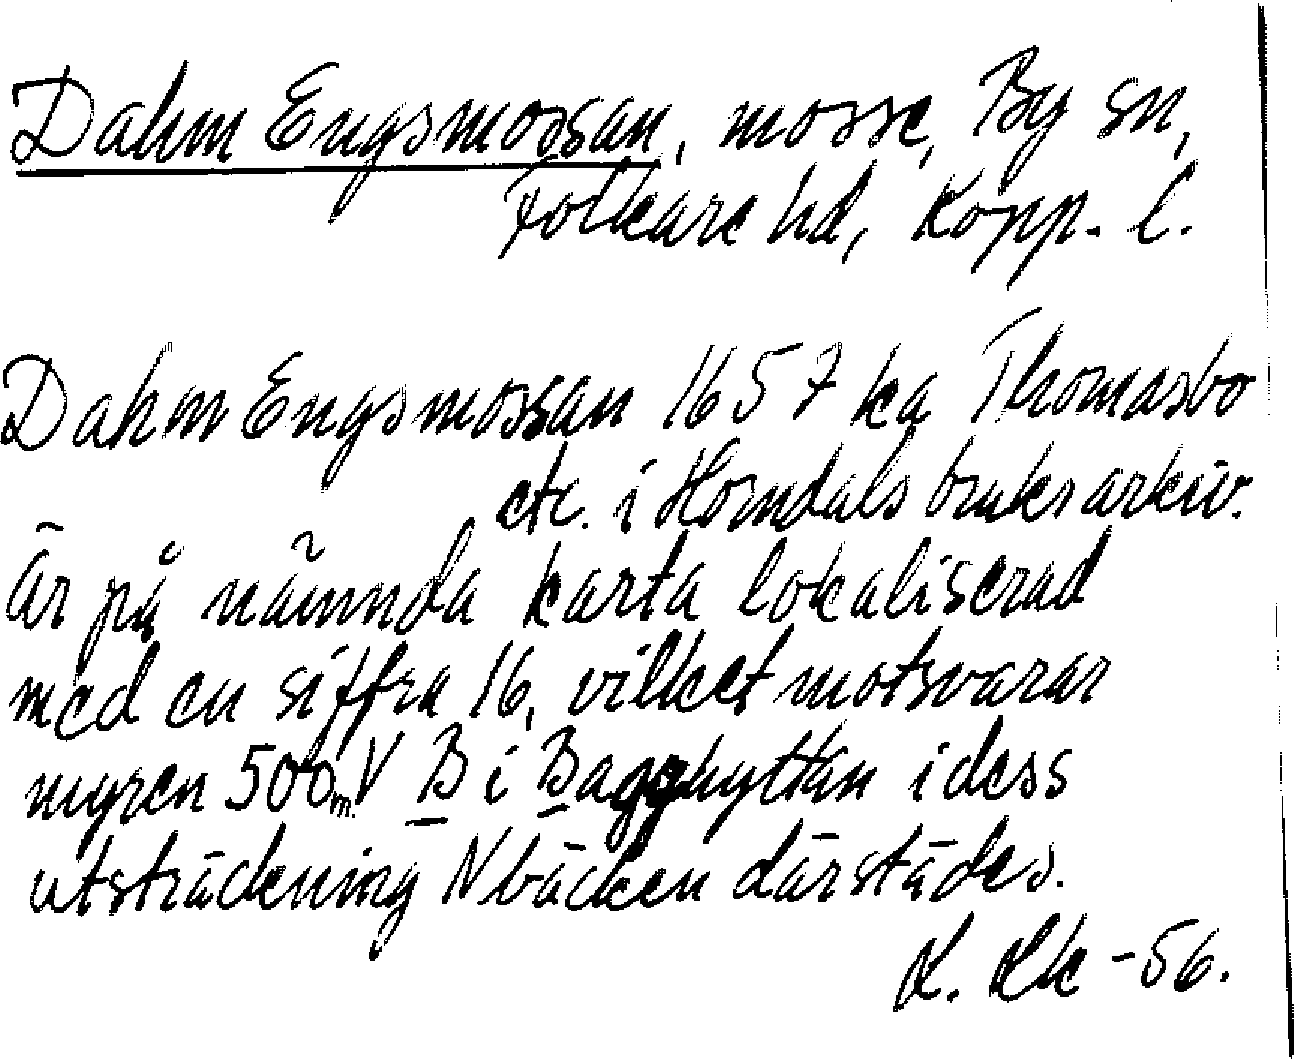 Dahm Engsmossan, mosse, By sn,
Folkare hd, Kopp. l.
Dahm Engsmossan 1657 ka Thomasbo
etc. i Horndals bruksarkiv.
Är på nämnda karta lokaliserad
med en siffra 16, vilket motsvarar
myren 500 m V B i Bagghyttan i dess
utsträckning N bäcken därstädes.
L. Lk -56.